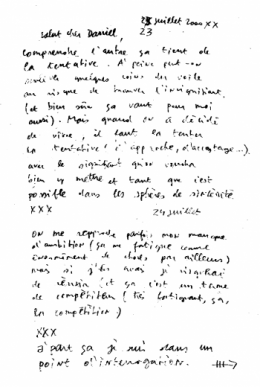 23 juillet 2000 XX
salut cher Daniel,
23
comprendre l'autre ça tient de
la tentative. A peine peut-on
quelques coins du voile
au risque de trouver l'insignifiant
(et bien sûr ça vaut pour moi
aussi). Mais quand on a décidé
de vivre, il faut la tenter
la tentative (d'approche, d'abordage...).
avec le signifiant qu'on voudra
bien y mettre et tant que c'est
possible dans les sphères de sincérité
XXX
24 juillet
On me reproche parfois mon manque
d'ambition (ça me fatigue comme
énormément de choses par ailleurs)
mais si j'en avais je risquerais
de réussir (et ça c'est un terme
de compétition (très fatiguant, ça,
la compétition)
XXX
à part ça je suis dans un
point d'interrogation.